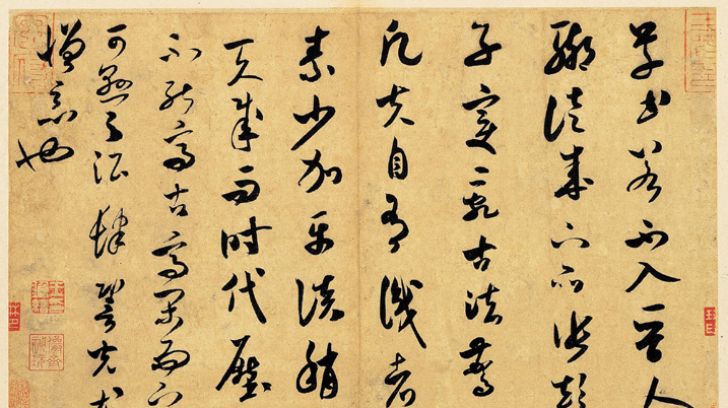 草書若不入晉人
聊徒成下品張顛
子變亂古法驚
凡夫自有識者
素少加平淡稍
天成而時代壓
不能高古高閑而下
可懸之酒肆䛒光尤
憎惡也